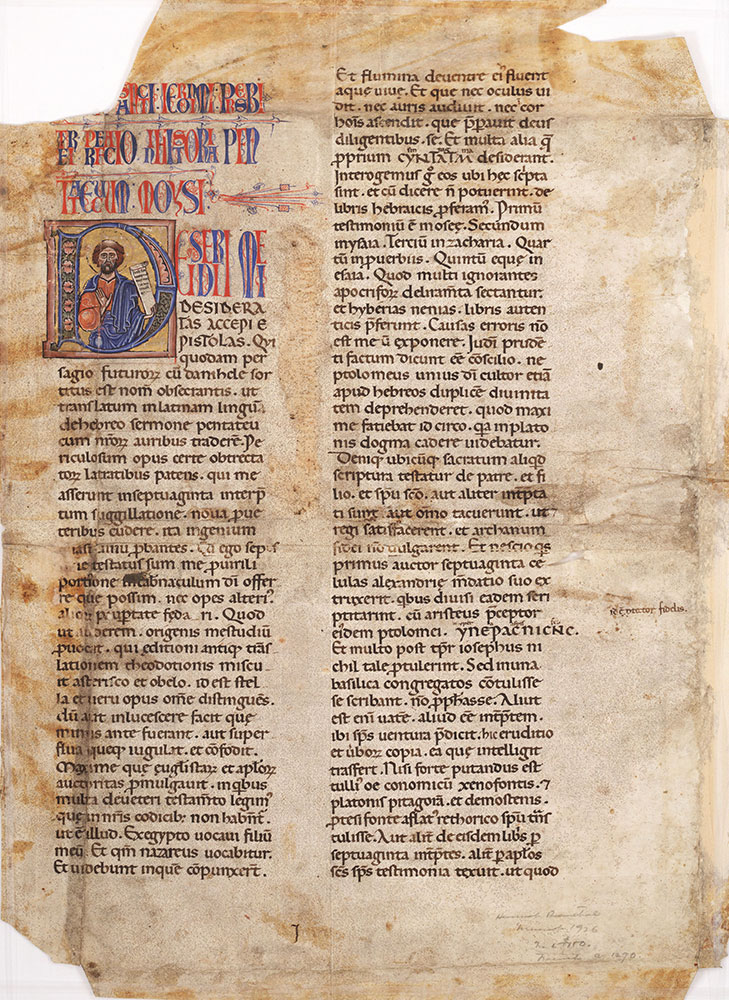 ANCTI IERONIMI PRESBI
TERI PREFACIO IN HISTORIA PEN
TATEUCUM MOYSI
DESERII ME
UDII MI
DESIDERA
TAS ACCEPI E
PISTOLAS. QVI
quodam per
sagio futurorꝝ cū danihele sor
titus est nom̄ obsecrantis. ut
translatum in latinam linguā
de hebreo sermone pentateu
cum nr̄orꝝ auribus traderē. Pe
riculosum opus certe obtrecta
torꝝ latratibus patens. qui me
asserunt in septuaginta interp̄
tum suggillatione. noua ꝓ ue
teribus cudere. ita ingenium
uinū ꝓbantes. Cū ego sepis
testatus sum me ꝓ uirili
portione in tabnaculum dī offer
re que possim. nec opes alteri
alioꝝ paupertate fedari. Quod
ut auderem. origenis me studiū
ꝓuocat. qui editioni antiquę trās
lationem theodotionis miscu
it asterisco et obelo. id est stel
la et ueru opus om̄e distinguēs.
dū aut inlucescere facit quę
minus ante fuerant. aut super
flua quęq iugulat et cōfodit.
Maxime quę euglistarꝝ et aplorꝝ
auctoritas ꝓmulgauit. in qbus
multa de ueteri testam̄to legim
que in nr̄is codicib non habn̄t.
ut ē illud. Ex egypto uocaui filiū
meū. Et qm̄ nazareus uocabitur.
Et uidebunt in quē cōpunxerr̄.
Et flumina de uentre ei fluent
aquę uiuę. Et que nec oculus ui
dit. nec auris audiuit. nec cor
hoīs ascendit. que p̄parauit deus
diligentibus. se. Et multa alia q̄
ꝓprium CYNTATMA desiderant.
Interogemus g° eos ubi hęc sc̄pta
sint. et cū dicere n̄ potuerint. de
libris hebraicis ꝓferam. Primū
testimoniū ē in oseę. Secundum
in ysaia. Terciū in zacharia. Quar
tū in puerbiis. Quintū ęque in
esaia. Quod multi ignorantes
apocriforꝝ deliram̄ta sectantur.
et hyberias nenias. libris auten
ticis p̄ferunt. Causas erroris n̄o
est meū exponere. Iudei prudē
ti factum dicunt eē cōscilio. ne
ptolomeus unius dī cultor etiā
apud hebreos duplicē diuinita
tem deprehenderet. quod maxi
me fatiebat id circo. qa in plato
nis dogma cadere uidebatur.
Deniq ubicūq sacratum aliqd
scriptura testatur de patre. et fi
lio. et sp̄u sc̄o. aut aliter int̄pta
ti sunt. aut om̄o tacuerunt. ut
regi satisfacerent. et archanum
fidei n̄o uulgarent. Et nescio qs
primus auctor septuaginta ce
lulas alexandrię m̄datio suo ex
truxerit. qbus diuisi eadem scri
ptitarint. cū aristeus p̄ceptor
eidem ptolomei. ΥΠΕΡΑCΠΙCΤΗC.
Et multo post tp̄r iosephus ni
chil tale ꝓtulerint. Sed in una
basilica congregatos cōtulisse
se scribant. n̄o ꝓphasse. Aliut
est eni uatē. aliud eē int̄ptem.
ibi sp̄s uentura p̄dicit. hic eruditio
et ūborꝝ copia. ea quę intelligit
trasfert. Nisi forte putandus est
tulli oeconomicū xenofontis. ⁊
platonis pitagorā. et demostenis.
ꝓtesifonte aflat rethorico sp̄u tn̄s
tulisse. Aut alit̄ de eisdem libs ꝑ
septuaginta int̄ptes. alit̄ ꝑ aplos
sc̄s sp̄s testimonia texuit. ut quod